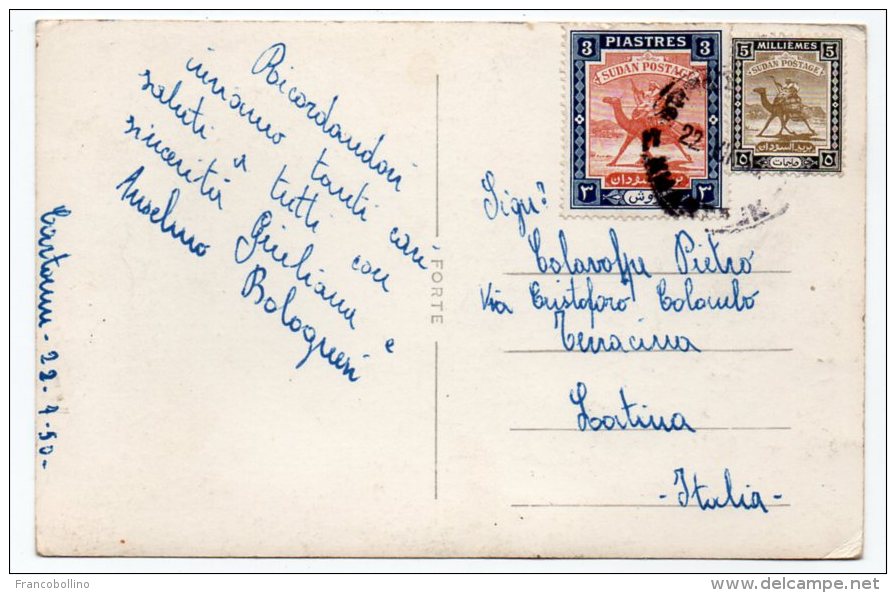 Ricordandovi
inviamo tanti cari
saluti a tutti con
sincerità Giuliana e
Anselmo Bolognesi
Cartoum - 22-7-50-
FORTE
3 PIASTRES 3
SUDAN POSTAGE
بريد السودان
٣ قروش ٣
5 MILLIÈMES 5
SUDAN POSTAGE
بريد السودان
٥ مليمات ٥
22
Sigr
Colavolpe Pietro
Via Cristoforo Colombo
Terracina
Latina
- Italia -
Francobollino
delcampe.net